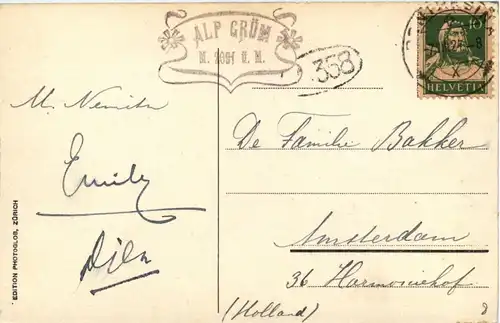 ALP GRÜM
M. 2091 ü. M.
358
10
HELVETIA
Emily
De Familie Bakker
Amsterdam
36 Harmoniehof
(Holland)
EDITION PHOTOGLOB, ZÜRICH